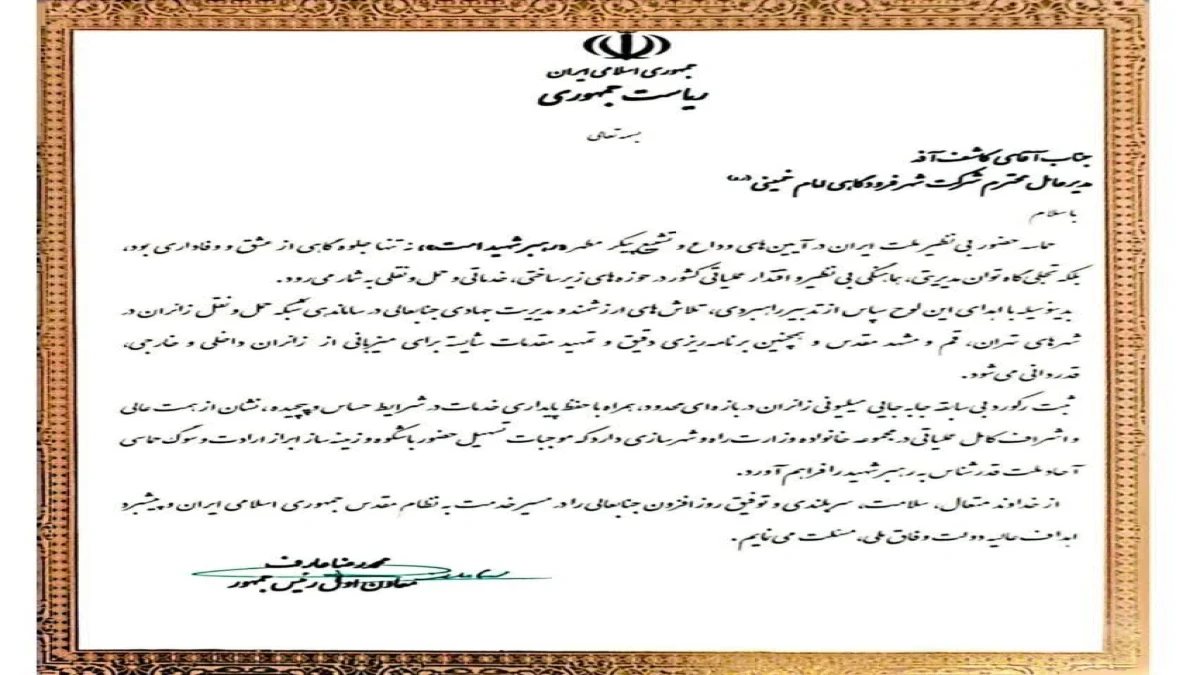 جمهوری اسلامی ایران
ریاست جمهوری
بسمه تعالی
جناب آقای کاشف آقد
مدیرعامل محترم شرکت شهر فرودگاهی امام خمینی (ره)
با سلام
حماسه حضور بی نظیر ملت ایران در آیین‌های وداع و تشییع پیکر مطهر «رهبر شهید امت»، نه تنها جلوه گاهی از عشق و وفاداری بود،
بلکه تجلی گاه توان مدیریتی، هماهنگی بی نظیر و اقتدار عملیاتی کشور در حوزه های زیرساختی، خدماتی و حمل و نقلی به شمار می رود.
بدینوسیله با اهدای این لوح سپاس از تدبیر راهبردی، تلاش های ارزشمند و مدیریت جهادی جنابعالی در ساماندهی شبکه حمل و نقل زائران در
شهرهای تهران، قم و مشهد مقدس و همچنین برنامه ریزی دقیق و تمهید مقدمات شایسته برای میزبانی از زائران داخلی و خارجی،
قدردانی می شود.
ثبت رکورد بی سابقه جابه جایی میلیونی زائران در بازه ای محدود، همراه با حفظ پایداری خدمات در شرایط حساس و پیچیده، نشان از همت عالی
و اشراف کامل عملیاتی در مجموعه خانواده وزارت راه و شهرسازی دارد که موجبات تسهیل حضور باشکوه و زمینه ساز ابراز ارادت و سوگ حماسی
آحاد ملت قدرشناس به رهبر شهید را فراهم آورد.
از خداوند متعال، سلامت، سربلندی و توفیق روزافزون جنابعالی را در مسیر خدمت به نظام مقدس جمهوری اسلامی ایران و پیشبرد
اهداف عالیه دولت وفاق ملی، مسئلت می نمایم.
محمدرضا عارف
معاون اول رئیس جمهور